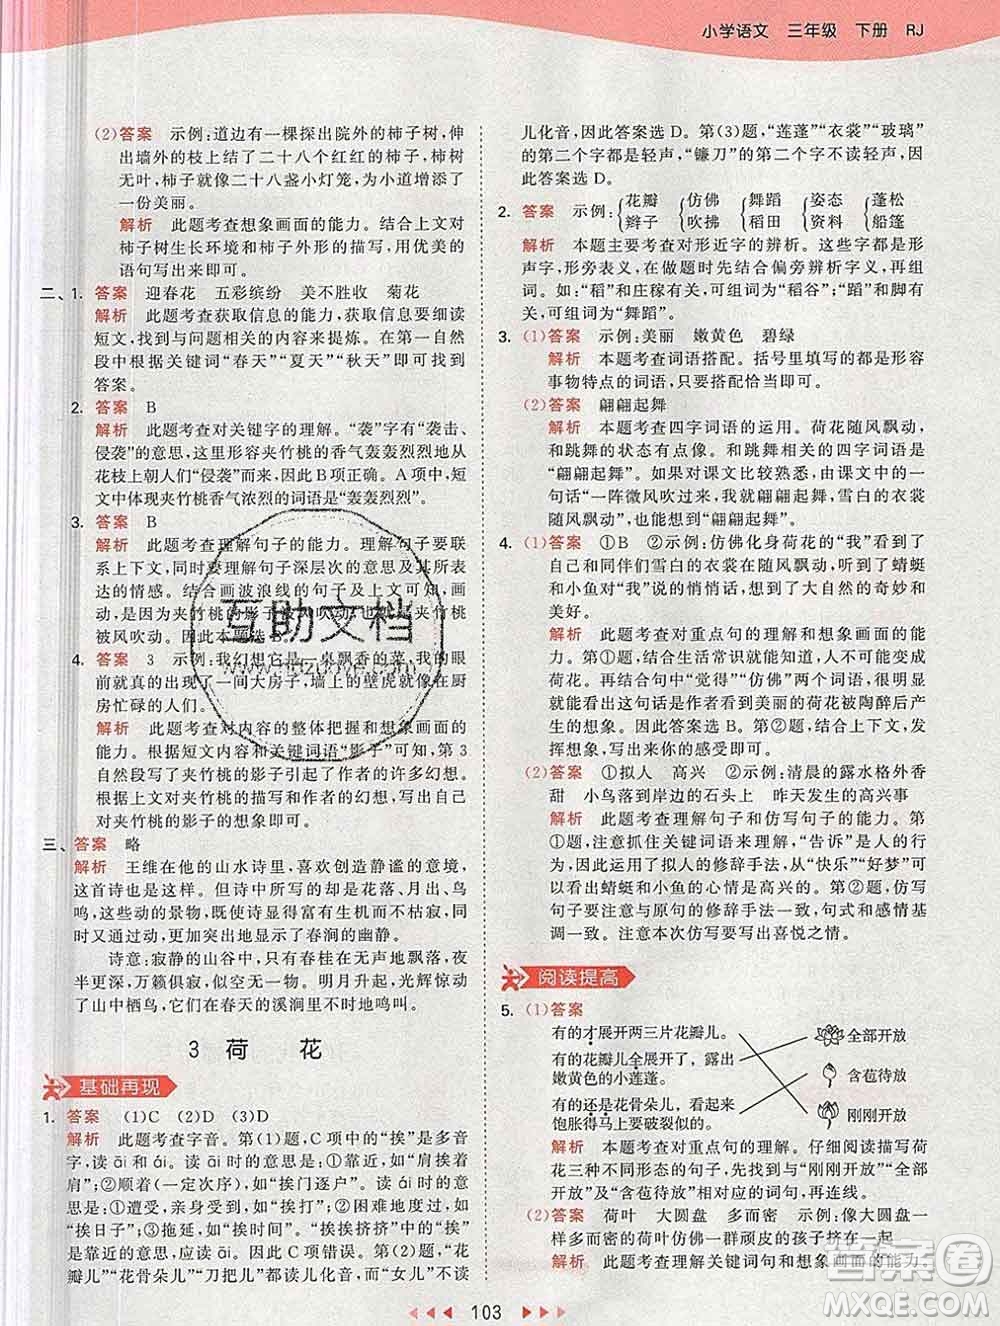 小学语文 三年级 下册 RJ
(2)答案 示例:道边有一棵探出院外的柿子树,伸
出墙外的枝上结了二十八个红红的柿子,柿树
好像举了二十八盏小灯笼,为小道增添了
一份美丽。
解析 此题考查想象画面的能力。结合上文对
柿子树生长环境和柿子外形的描写,用优美的
语句写出来即可。
二、1. 答案 迎春花 五彩缤纷 美不胜收 菊花
解析 此题考查获取信息的能力,获取信息要细读
短文,找到与问题相关的内容来提炼。在第一自然
段中根据关键词“春天”“夏天”“秋天”即可找到
答案。
2. 答案 B
解析 此题考查对关键字的理解。“袭”字有“袭击、
侵袭”的意思,这里形容夹竹桃的香气浓烈得好像从
花枝上朝人们“侵袭”过来,因此B项正确。A项中,
短文中体现夹竹桃香气浓烈的词语是“轰轰烈烈”。
3. 答案 B
解析 此题考查理解句子的能力。理解句子要联
系上下文,弄清句子深层次的意思及所要表达
的情感。结合画波浪线的句子及上文可知,因
为月光是不动的,影子动是因为夹竹桃
被风吹动。因此本题选B。
4. 答案 3 示例:我幻想它是一桌飘香的菜,我的眼
前立刻出现了一间大房子,墙上的壁虎就像在厨
房忙碌的人们。
解析 此题考查对内容的整体把握和想象画面的
能力。根据短文内容和关键词语“影子”可知,第3
自然段写夹竹桃的影子引起了作者的许多幻想。
根据对夹竹桃的描写和作者的幻想,写出自己
对夹竹桃的影子的想象即可。
三、答案 略
解析 王维在他的山水诗里,喜欢创造静谧的意境,
这首诗也是这样。但诗中所写的却是花落、月出、鸟
鸣,这些动的景物,既使诗显得富有生机而不枯寂,同
时又通过动,更加突出地显示出了春涧的幽静。
诗意:寂静的山谷中,只有春桂在无声地飘落,夜
半更深,万籁俱寂,似空无一物。明月升起,光辉惊动
了山中栖鸟,它们在春天的溪涧里不时地鸣叫。
3 荷 花
基础再现
1. 答案 (1)C (2)D (3)D
解析 此题考查字音。第(1)题,C项中的“挨”是多音
字,读āi和ái。读āi时的意思是:①靠近,如“肩挨着
肩”;②顺着(一定次序),如“挨门逐户”。读ái时的意
思是:①遭受,亲身承受,如“挨打”;②困难地度过,
如“挨日子”;③拖延,如“挨时间”。“挨挨挤挤”中的
“挨”是靠近的意思,应读āi,因此C项错误。第(2)题,“花
瓣儿”“花骨朵儿”“刀把儿”都读儿化音,而“女儿”不读
儿化音,因此答案选D。第(3)题,“莲蓬”“衣裳”“玻璃”
的第二个字都是轻声,“镰刀”的第二个字不读轻声,
因此答案选D。
2. 答案 示例:{花瓣 {仿佛 {舞蹈 {姿态 {蓬松
{辫子 {吹拂 {稻田 {资料 {船篷
解析 本题主要考查对形近字的辨析。这些字都是形
声字,形旁表意,做题时先结合偏旁辨析字义,再组
词。如:“稻”和庄稼有关,可组词为“稻谷”;“蹈”和脚
有关,可组词为“舞蹈”。
3. (1)答案 示例:美丽 嫩黄色 碧绿
解析 本题考查词语搭配。括号里填写的都是形容
事物特点的词语,只要搭配恰当即可。
(2)答案 翩翩起舞
解析 本题考查四字词语的运用。荷花随风飘动,
和跳舞的状态有点像。和跳舞有关的四字词语是
“翩翩起舞”。如果对课文比较熟悉,由课文中的一
句话“一阵微风吹过来,我就翩翩起舞,雪白的衣裳
随风飘动”,也能想到“翩翩起舞”。
4. (1)答案 ①B ②示例:仿佛化身荷花的“我”看见
了自己和同伴们雪白的衣裳在随风飘动,听见蜻蜓
和小鱼对“我”说的悄悄话,想到了大自然的奇妙和
美好。
解析 此题考查对重点句的理解和想象画面的能力。
第①题,结合生活常识就能知道人不可能真的变成
荷花。结合句中“觉得”“仿佛”两个词语,很明显
能看出这句话是写作者看到美丽的荷花被陶醉后产
生的想象。因此答案选B。第②题,结合上下文,发
挥想象,写出你的感受即可。
(2)答案 ①拟人 高兴 ②示例:清晨的露水格外香
甜 小鸟落到岸边的石头上 昨天发生的高兴事
解析 本题考查理解句子和仿写句子的能力。第
①题,注意抓住关键词语来理解,“告诉”是人的行
为,因此运用了拟人的修辞手法,从“快乐”“好梦”可
以看出蜻蜓和小鱼的心情应是高兴的。第②题,仿写
句子要注意与原句的修辞手法一致,句式和感情基
调相同。注意本次仿写要写出喜悦之情。
阅读提高
5. (1)答案
有的才展开两三片花瓣儿。
有的花瓣儿全展开了,露出
嫩黄色的小莲蓬。
有的还是花骨朵儿,看起来
饱胀得马上要破裂似的。
全部开放
含苞待放
刚刚开放
解析 本题考查对重点句的理解。仔细阅读描写荷
花三种不同形态的句子,提炼关键词找到与“刚刚开放”“全部
开放”及“含苞待放”对应的状态。
(2)答案 荷叶 大圆盘 多而密 示例:像大圆盘一
样多而密的荷叶仿佛一群顽皮的孩子挤在一起
解析 此题考查理解关键词句和想象画面的能力。
103
互助文档
答案圈
MXQE.COM